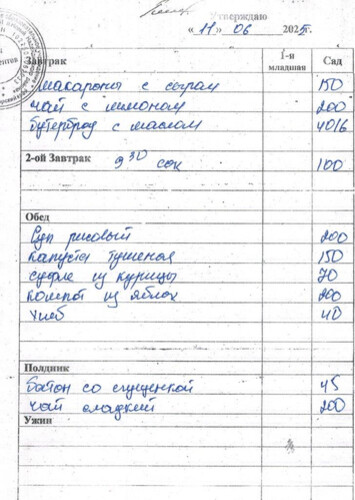 Утверждаю
« 11 » 06 2025г.
1-я младшая Сад
Завтрак
макароны с сыром 150
чай с лимоном 200
бутерброд с маслом 40/6
2-ой Завтрак 9 30 сок 100
Обед
Суп рисовый 200
капуста тушеная 150
суфле из курицы 70
компот из яблок 200
хлеб 40
Полдник
батон со сгущенкой 45
чай сладкий 200
Ужин